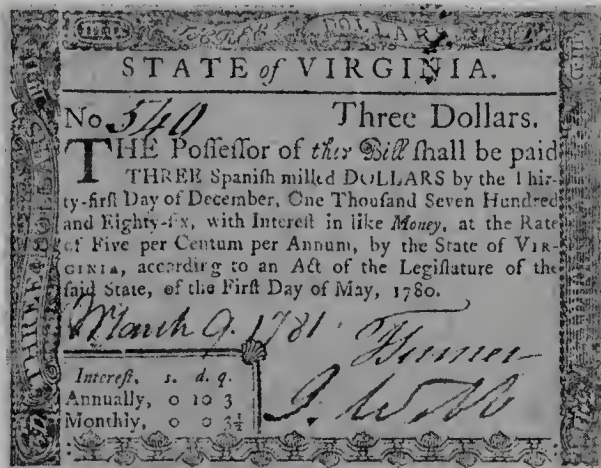 THREE DOLLARS.
STATE of VIRGINIA.
No 540 Three Dollars.
THE Poſſeſſor of this Bill ſhall be paid
THREE Spaniſh milled DOLLARS by the Thir-
ty-firſt Day of December, One Thouſand Seven Hundred
and Eighty-ſix, with Intereſt in like Money, at the Rate
of Five per Centum per Annum, by the State of VIR-
GINIA, according to an Act of the Legiſlature of the
ſaid State, of the Firſt Day of May, 1780.
March 9. 1781. Turner
J. Webb
Intereſt. s. d. q.
Annually, 0 10 3
Monthly, 0 0 3½
THREE DOLLARS